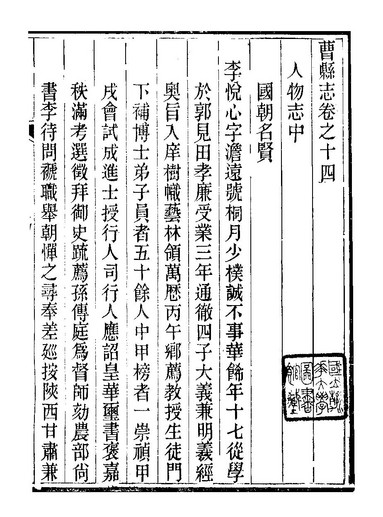 曹縣志卷之十四
人物志中
國朝名賢
李悅心字澹遠號桐月少樸誠不事華餙年十七從學
於郭見田孝廉受業三年通徹四子大義兼明義經
奧旨入庠樹幟藝林領萬歷丙午鄉薦教授生徒門
下補博士弟子員者五十餘人中甲榜者一崇禎甲
戌會試成進士授行人司行人應詔皇華璽書褒嘉
秩滿考選徵拜御史䟽薦孫傳庭爲督師劾農部尙
書李待問褫職舉朝憚之尋奉差廵按陝西甘肅兼